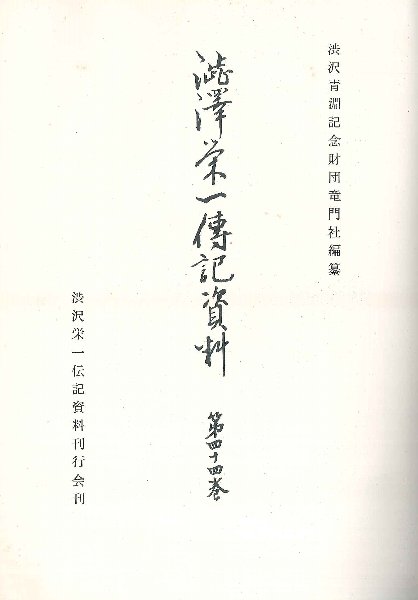 渋沢青淵記念財団竜門社編纂
澁澤栄一傳記資料
第四十四巻
渋沢栄一伝記資料刊行会刊